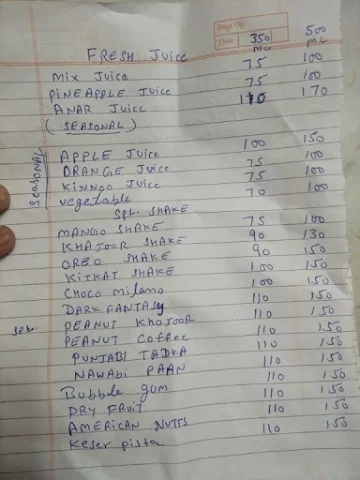 Page No.
Date 350 ML 500 ML
FRESH Juice
Mix Juice 75 100
PINEAPPLE Juice 75 100
ANAR Juice 110 170
(SEASONAL)
SEASONAL
APPLE Juice 100 150
ORANGE Juice 75 100
KINNOO Juice 75 100
vegetable 70 100
SPL. SHAKE
MANGO SHAKE 75 100
KHAJOOR SHAKE 90 130
OREO SHAKE 90 150
KITKAT SHAKE 100 150
Choco milano 100 150
DARK FANTASY 110 150
SPL. PEANUT KHAJOOR 110 150
PEANUT Coffee 110 150
PUNJABI TADKA 110 150
NAWABI PAAN 110 150
Bubble gum 110 150
DRY FRUIT 110 150
AMERICAN NUTTS 110 150
Keser pista 110 150